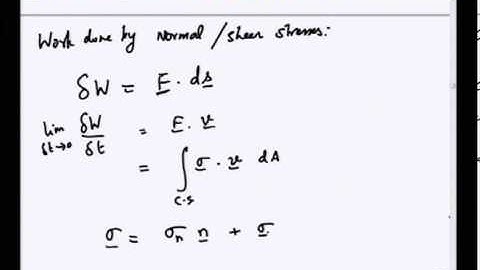 Work done by Normal / shear stresses:
δW = F . ds
lim δt→0 δW/δt = F . v
= ∫ c.s σ . v dA
σ = σn n + σ